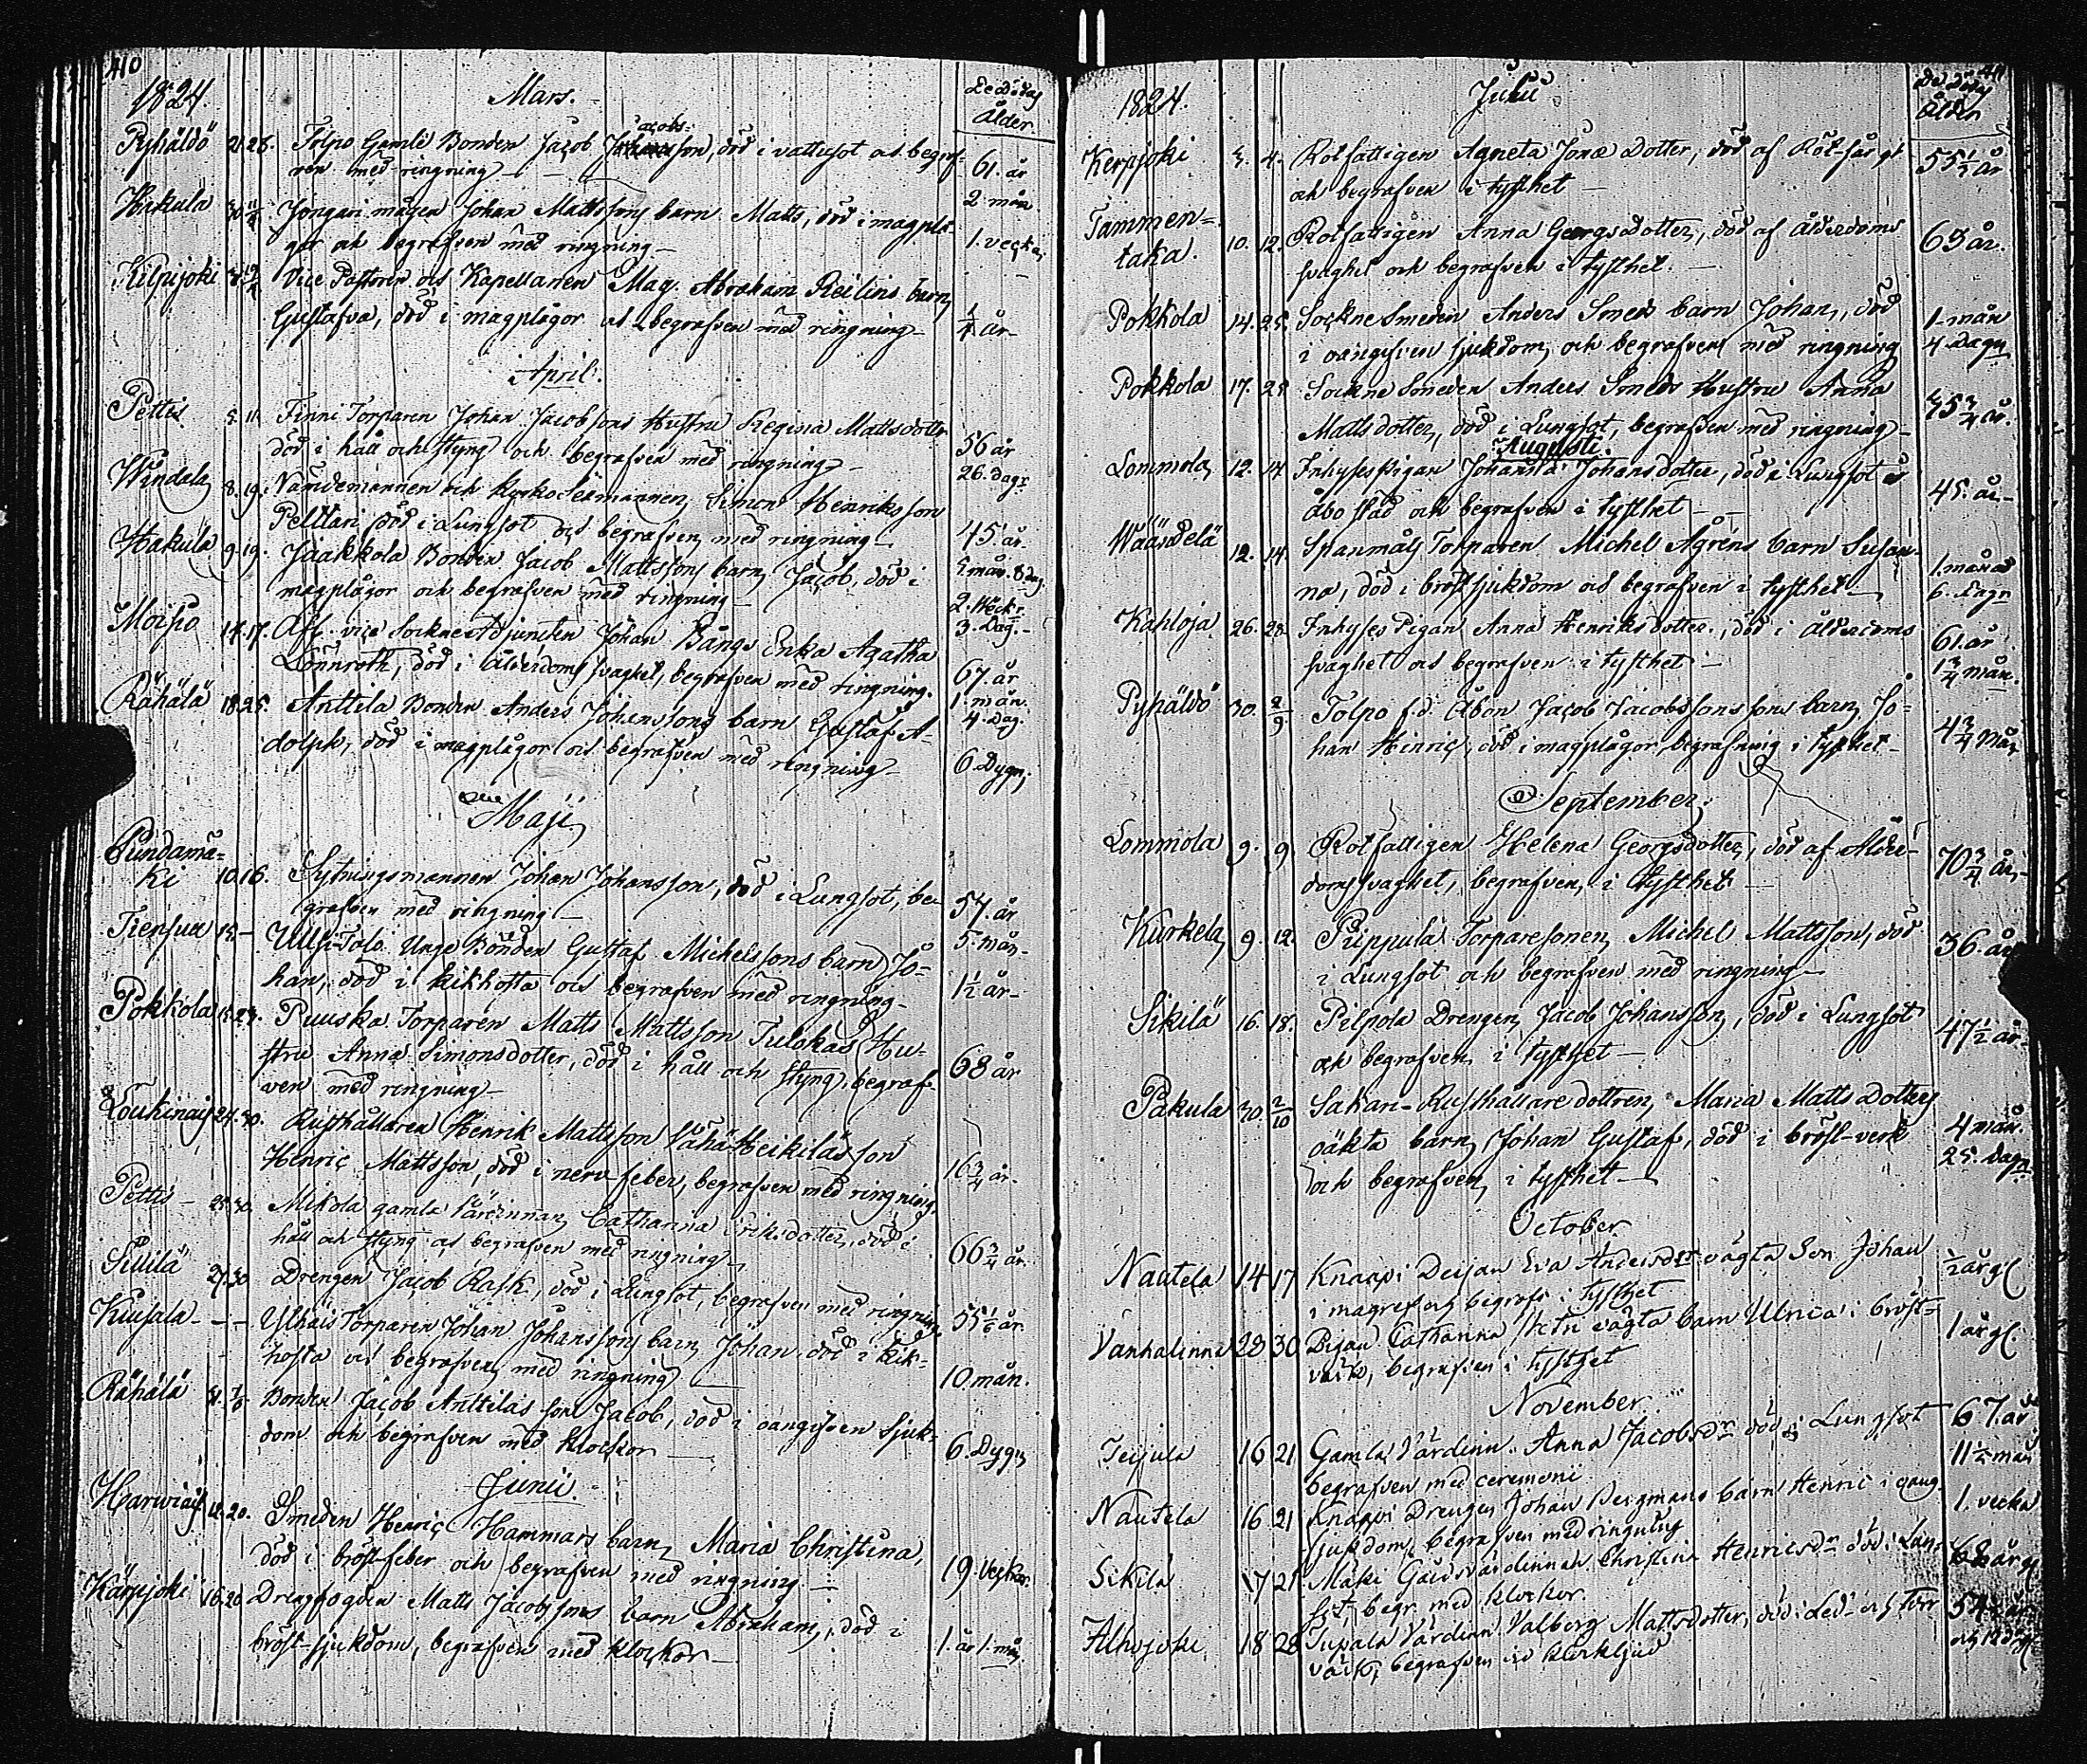 410
1824. Mars. De Dödas
Ålder.
Pyhäldö 21. 28. Tolpo Gamle Bonden Jacob Jacobsson, död i vattusot och begraf-
ven med ringning — 61. år
2 mån
Hakula Johan Mattssons barn Matts, död i magplå-
gor och begrafven med ringning — 1. vecka,
Kilpijoki Vice Pastoren och Kapellanen Mag. Abraham Reilins barn
Gustafva, död i magplågor och begrafven med ringning — 1/4 år —
April.
Pettis 5. 11. Finni Torparen Johan Jacobssons Hustru Regina Mattsdotter
död i håll och styng och begrafven med ringning — 56 år
26. dagr
8. 19. Nämndemannen och Simon Henriksson
Pelttari död i Lungsot och begrafven med ringning — 45 år.
Hakula 9. 19. Jaakkola Bonden Jacob Mattssons barn Jacob, död i
magplågor och begrafven med ringning — 2. Veck.
3. Dag. —
Moisio 14. 17. Afl. vice Sockne Adjuncten Johan Bångs Enka Agatha
Lönnroth, död i ålderdoms svaghet, begrafven med ringning. 67. år
1. mån.
4. Dag.
Rähälä 18. 25. Anttila Bonden Anders Johanssons barn Gustaf A-
dolph, död i magplågor och begrafven med ringning — 6. Dygn,
Maji.
Pundamä-
ki 10. 16. Sytningsmannen Johan Johansson, död i Lungsot, be-
grafven med ringning — 57. år
5. mån —
15. — Ulluis-Tolo Unge Bonden Gustaf Michelssons barn Jo-
han, död i kikhosta och begrafven med ringning — 1½ år —
Pokkola 15. 23. Puuska Torparen Matts Mattsson Tulokas Hu-
stru Anna Simonsdotter, död i håll och styng, begraf-
ven med ringning — 68 år
24. 30. Rusthållaren Henrik Mattsson Vähä Heikiläs son
Henric Mattsson, död i nervfeber, begrafven med ringning. 16¾ år.
Pettis — 25. 30. Mikola gamla Värdinnan Catharina Eriksdotter, död i
håll och styng och begrafven med ringning — 66¾ år
27. 30 Drengen Jacob Rask, död i Lungsot, begrafven med ringning 55 1/6 år
Kuujala — — — Torparen Johan Johanssons barn Johan död i kik-
hosta och begrafven med ringning — 10. mån.
Rähälä 31. Bonden Jacob Anttilas son Jacob, död i oangifven Sjuk-
dom och begrafven med klockor — 6. Dygn
Junii.
12. 20. Smeden Henric Hammars barn Maria Christina,
död i bröstfeber och begrafven med ringning — 19. Veckor.
Kärpijoki 16. 20 Drengfogden Matts Jacobssons barn Abraham, död i
bröst-sjukdom, begrafven med klockor — 1. år 1. mån
411
1824. Julii De Dödas
Ålder
Kerpjoki 3. 4. Rotfattigen Agneta Jonæ Dotter, död af Röt-sår
och begrafven i tysthet —
Tammen-
taka. 10. 12. Rotfattigen Anna Georgs Dotter, död af ålderdoms
svaghet och begrafven i tysthet. — 65 år.
Pokkola 14. 25. Sockne Smeden Anders Smeds barn Johan, död
i oangifven sjukdom, och begrafven med ringning 1 mån
4 Dagar
Pokkola 17. 25 Sockne Smeden Anders Smeds Hustru Anna
Matts dotter, död i Lungsot, begrafven med ringning — år.
Augusti.
Lommola 12. 14 Inhyses Pigan Johanna Johansdotter, död i Lungsot i
Åbo stad och begrafven i tysthet — 45. år —
Wäändelä 12. 14 Spanmåls Torparen Michel Ågréns barn Susan-
na, död i bröstsjukdom och begrafven i tysthet — 1. månad
6. Dagar
Kahloja 26. 28 Inhyses Pigan Anna Henriksdotter, död i ålderdoms
svaghet och begrafven i tysthet — 61. år
1¾ mån.
Pyhäldö 30. 2/9 Tolpo f.d. Åbon Jacob Jacobssons sons barn Jo-
han Hinric, död i magplågor, begrafning i tysthet — 4¾ Mån
September
Lommola 9. 9 Rotfattigen Helena Georgsdotter, död af ålder-
doms svaghet, begrafven i tysthet — 70¾ år —
Kurkela 9. 12. Pippula Torparesonen Michel Mattsson, död
i Lungsot och begrafven med ringning — 36. år
Sikilä 16. 18. Pilpola Drengen Jacob Johansson, död i Lungsot
och begrafven i tysthet — 47½ år
Pakula 30. 2/10 Sahan-Rusthållare dottren Maria Matts Dotters
oäkta barn Johan Gustaf, död i bröst-verk
och begrafven i tysthet — 4 mån.
25. Dagar
October
Nautela 14 17 Knaapi Deijan Eva Andersdr oägta Son Johan
i begrafv i tysthet ½ år gl
Vanhalinna 28 30 Pigan Catharina oägta barn Ulrica i bröst-
värk, begrafven i tysthet 1 år gl.
November
16 21 Gamla Värdinn. Anna Jacobsdr död i Lungsot
begrafven med ceremoni 67. år
11½ mån
Nautela 16 21 Knaapi Drengen Johan Bergmans barn Henric i oang.
sjukdom, begrafven med ringning 1. vecka
Sikilä 17 21 Mäki Gårdsvärdinnan Christina Henricsdr död i Lun-
sot, begr. med klockor.
Alhojoki 18 28 Värdinn Valborg Mattsdotter, död i Led- och torr
värk, begrafven